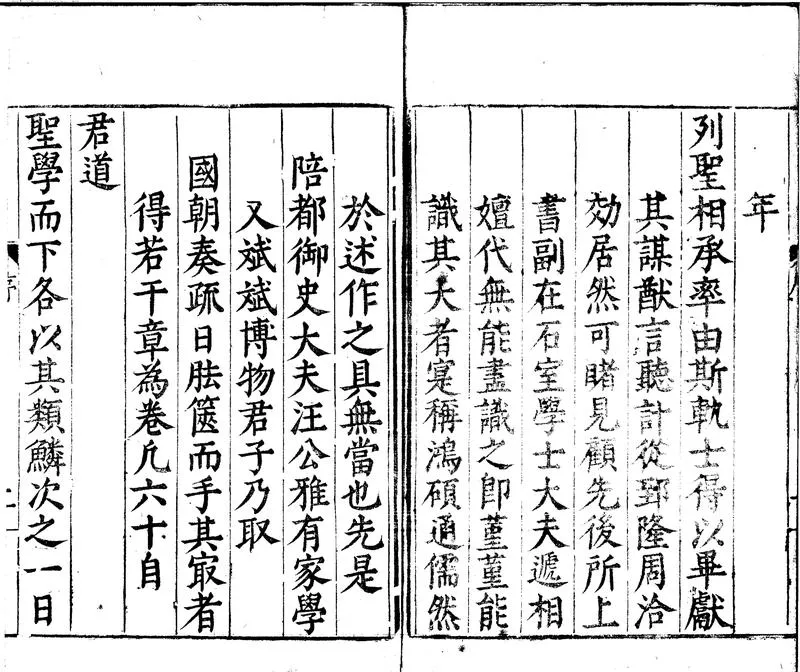 年
列聖相承率由斯軌士得以畢獻
其謀猷言聽計從郅隆周洽
効居然可睹見顧先後所上
書副在石室學士大夫遞相
嬗代無能盡識之即菫菫能
識其大者寔稱鴻碩通儒然
於述作之具無當也先是
陪都御史大夫汪公雅有家學
又斌斌博物君子乃取
國朝奏疏日胠篋而手其冣者
得若干章為卷凡六十自
君道
聖學而下各以其類鱗次之一日